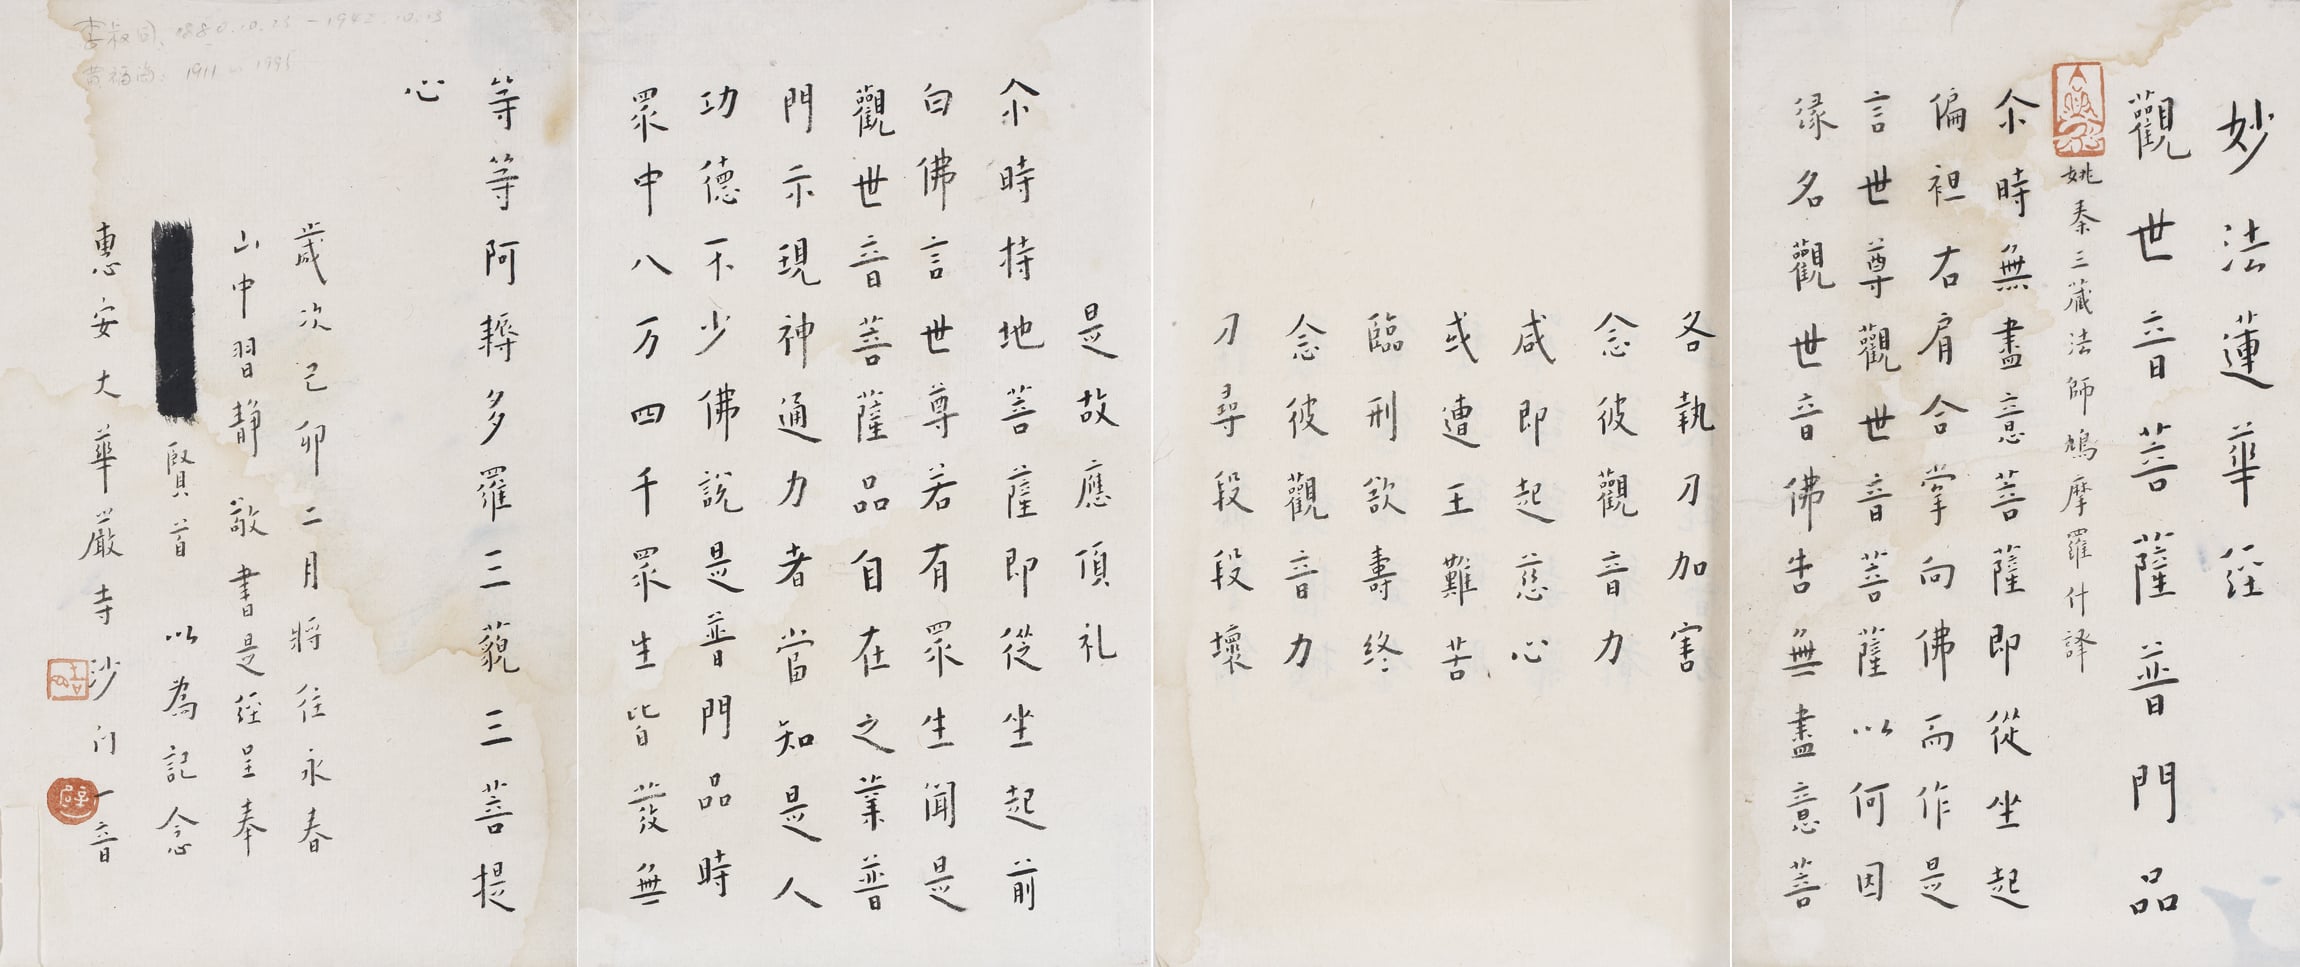 妙法蓮華經
觀世音菩薩普門品
姚秦三藏法師鳩摩羅什譯
尒時無盡意菩薩即從坐起
偏袒右肩合掌向佛而作是
言世尊觀世音菩薩以何因
緣名觀世音佛告無盡意菩
各執刀加害
念彼觀音力
咸即起慈心
或遭王難苦
臨刑欲壽終
念彼觀音力
刀尋段段壞
是故應頂礼
尒時持地菩薩即從坐起前
白佛言世尊若有眾生聞是
觀世音菩薩品自在之業普
門示現神通力者當知是人
功德不少佛說是普門品時
眾中八万四千眾生皆發無
等等阿耨多羅三藐三菩提
心
歲次己卯二月將往永春
山中習靜敬書是經呈奉
賢首 以為記念
惠安大華嚴寺沙門一音
李叔同：1880.10.23-1942.10.13
黃福海：1911-1995